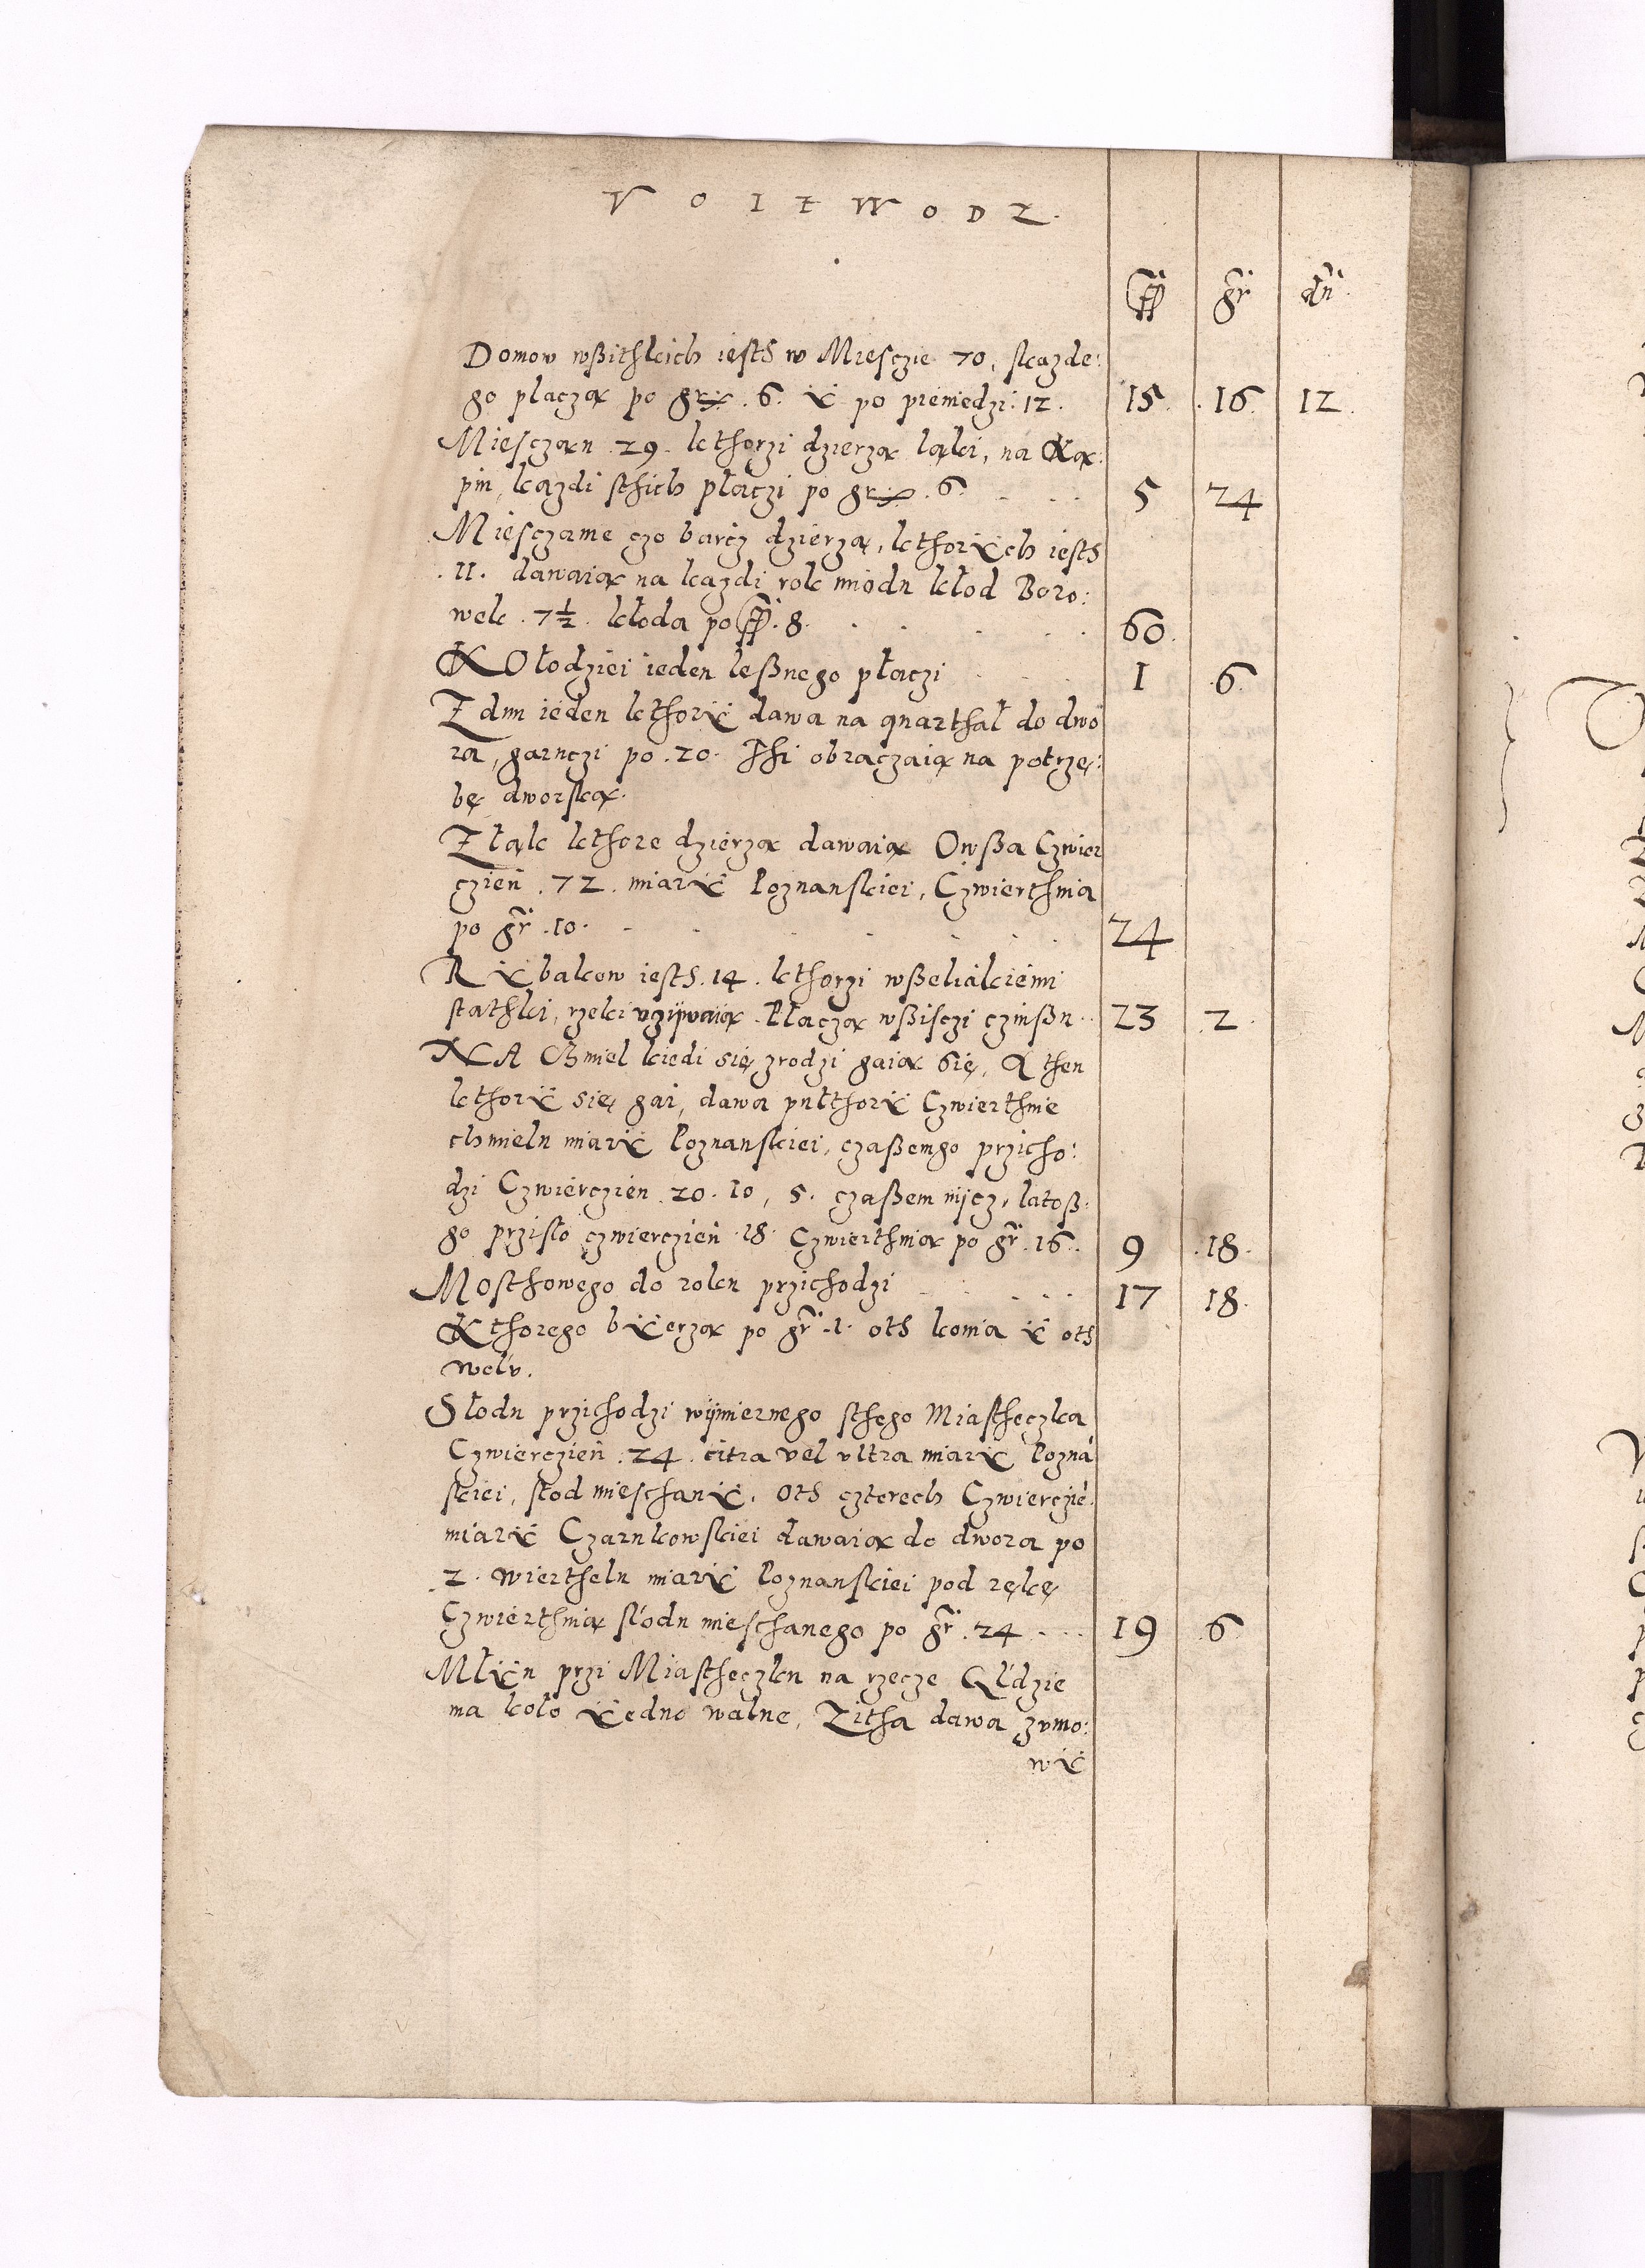 V O I E W O D Z.
ff gr dn.
Domow wßithkich iesth w Miesczie 70, skazde:
go placzą po grx. 6. ÿ po pieniedzi. 12. 15. 16. 12.
Miesczan 29. kthorzi dzierzą ląki, na Ką:
piń, kazdi sthich płaczi po grx. 6. 5 24
Miesczanie czo barcz dzierzą, kthorÿch iesth
.11. dawaią na kazdi rok miodu kłod Boro:
wek. 7½. kłoda po ff. 8. 60.
KOłodziei ieden leßnego płaczi 1 6.
Zdun ieden kthorÿ dawa na quarthał do dwo
ra, garnczi po. 20. Thi obraczaią na potrze:
bę dworską.
Złąk kthore dzierzą dawaią Owßa Czwier
czień. 72. miarÿ Poznanskiei, Czwierthnia
po gr. 10. 24
RÿbaKow iesth. 14. kthorzi wßeliakiemi
stathki, rzeki vziwaią. Płaczą wßisczi czinßu 23 2.
NA Chmiel kiedi się zrodzi gaią się, A then
kthorÿ się gai, dawa pułthorÿ Czwierthnie
chmielu miarÿ Poznanskiei, czaßemgo przicho:
dzi Czwierczien 20. 10, 5. czaßem nijcz, latoß:
go prziszło czwierczień 18. Czwierthnia po gr. 16. 9 18.
Mosthowego do roku przichodzi 17 18.
Kthorego bÿerzą po gr. 1. oth konia ÿ oth
wołu.
Słodu przichodzi wÿmiernego sthego Miastheczka
Czwierczień. 24. citra vel vltra miarÿ Pozná
skiei, słod mieschanÿ. Oth czterech Czwierczié.
miarÿ Czarnkowskiei dawaią do dwora po
2. Wierthelu miarÿ Poznanskiei pod rękę
Czwierthnią słodu mieschanego po gr. 24 19 6.
Młÿn przi Miastheczku na rzecze Głdzie
ma koło ÿedno walne, Zitha dawa zvmo:
wÿ